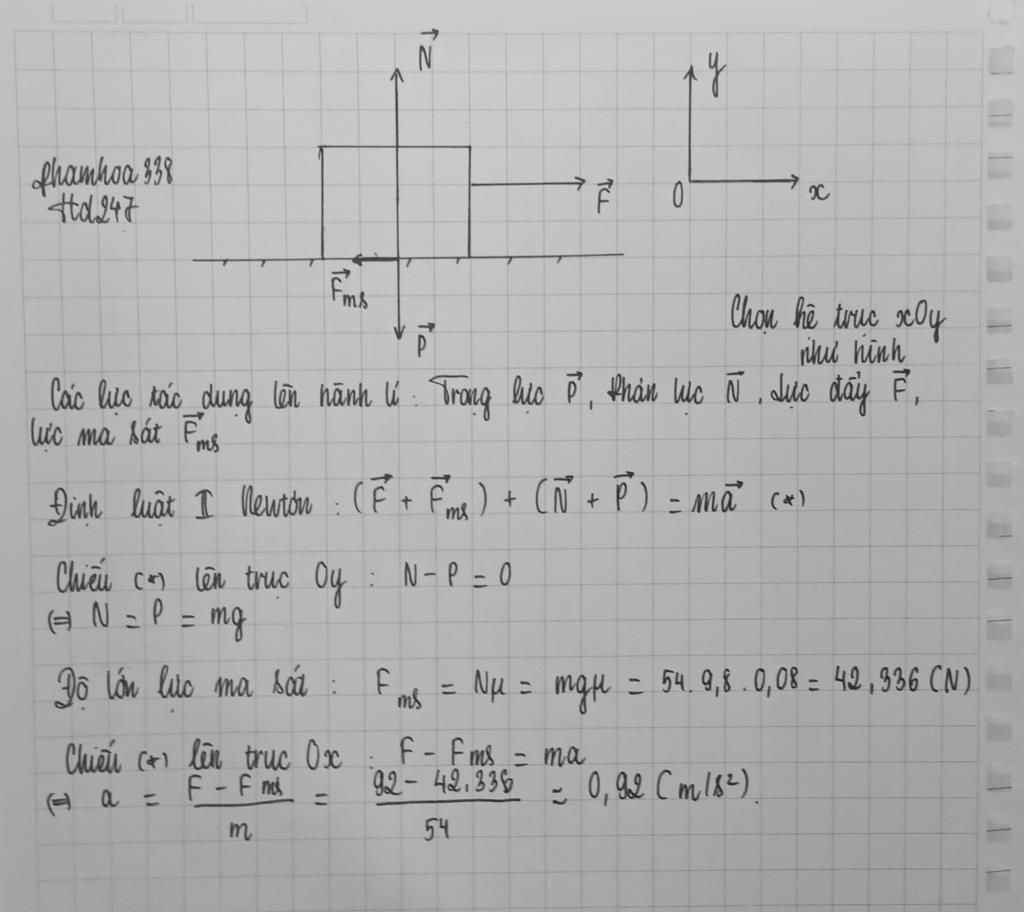 N⃗
y
phamhoa338
Hd247
F⃗
0
x
F⃗ms
P⃗
Chọn hệ trục xOy
như hình
Các lực tác dụng lên hành lí : Trọng lực P⃗, Phản lực N⃗, Lực đẩy F⃗,
lực ma sát F⃗ms
Định luật I Newton : (F⃗ + F⃗ms) + (N⃗ + P⃗) = ma⃗ (*)
Chiếu (*) lên trục Oy : N - P = 0
⇔ N = P = mg
Độ lớn lực ma sát : Fms = Nμ = mgμ = 54 . 9,8 . 0,08 = 42,336 (N)
Chiếu (*) lên trục Ox : F - Fms = ma
⇔ a = (F - Fms)/m = (92 - 42,336)/54 = 0,92 (m/s²).